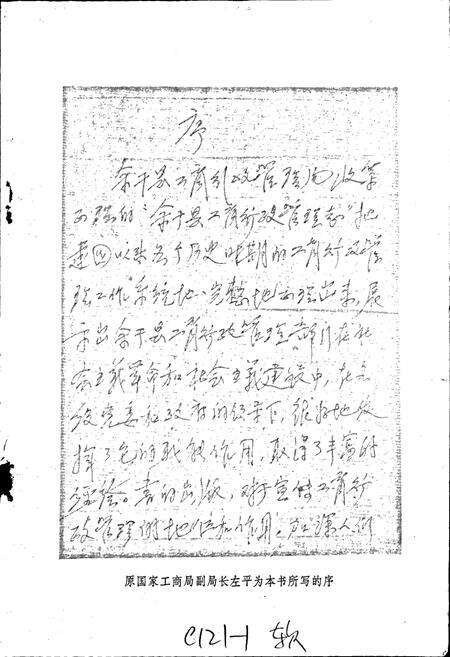 序
余干县工商行政管理局,收集
而理的“余干县工商行政管理志”把
建国以来各个历史时期的工商行政管
理工作系统地、完整地而理出来,展
示出余干县工商行政管理部门在社
会主义革命和社会主义建设中,在各
级党委和政府的领导下,很好地发
挥了它的职能作用,取得了丰富的
经验。志的出版,对于宣传工商行
政管理的地位和作用,加深人们
原国家工商局副局长左平为本书所写的序
C121-1 软